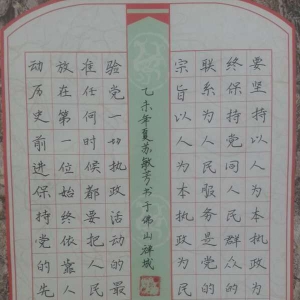 要坚持以人为本执政为
终保持党同人民群众的
联系为人民服务是党的
宗旨以人为本执政为民
乙未年夏苏敏芳书于佛山禅城
验党一切执政活动的最
准任何时候都要把人民
放在第一位始终依靠人
动历史前进保持党的先